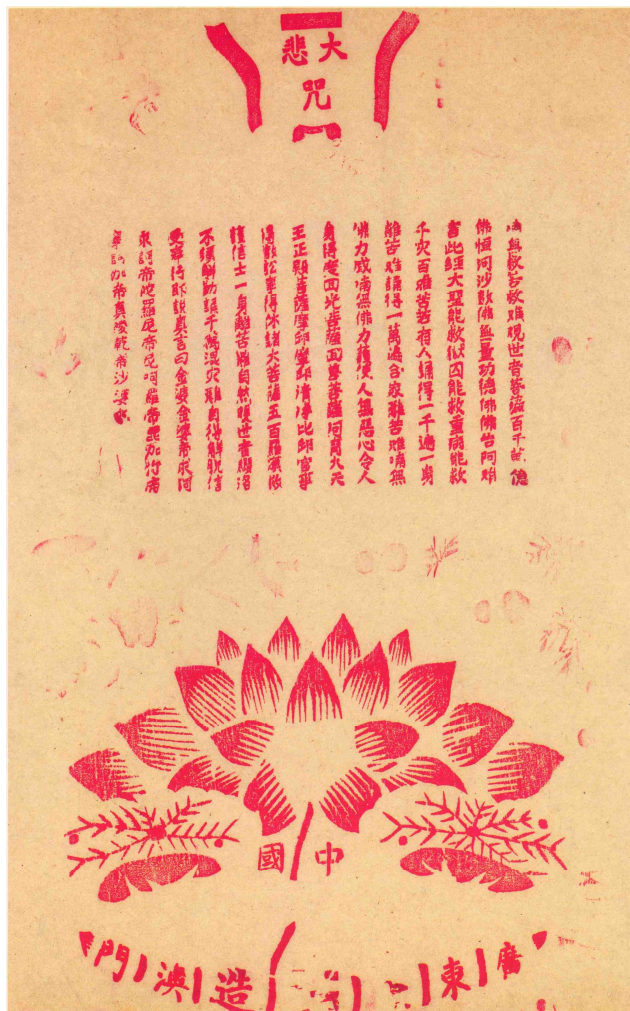 大悲
咒
喃無救苦救難觀世音菩薩百千萬億
佛恒河沙數佛無量功德佛佛告阿難
言此經大聖能救獄囚能救重病能救
千災百難苦若有人誦得一千遍一身
離苦難誦得一萬遍合家離苦難喃無
佛力威喃無佛力護使人無惡心令人
身得度回光菩薩回善菩薩阿耨大天
王正殿菩薩摩邱摩邱清淨比邱官事
得散訟事得休諸大菩薩五百羅漢救
護信士一身離苦難自然觀世音纓洛
不須解勤誦千萬遍災難自得解脫信
受奉行即說真言曰金婆金婆帝求阿
求訶帝陀羅尼帝尼呵羅帝毘加忹帝
訶加帝真陵乾帝沙婆
中國
廣東造澳門